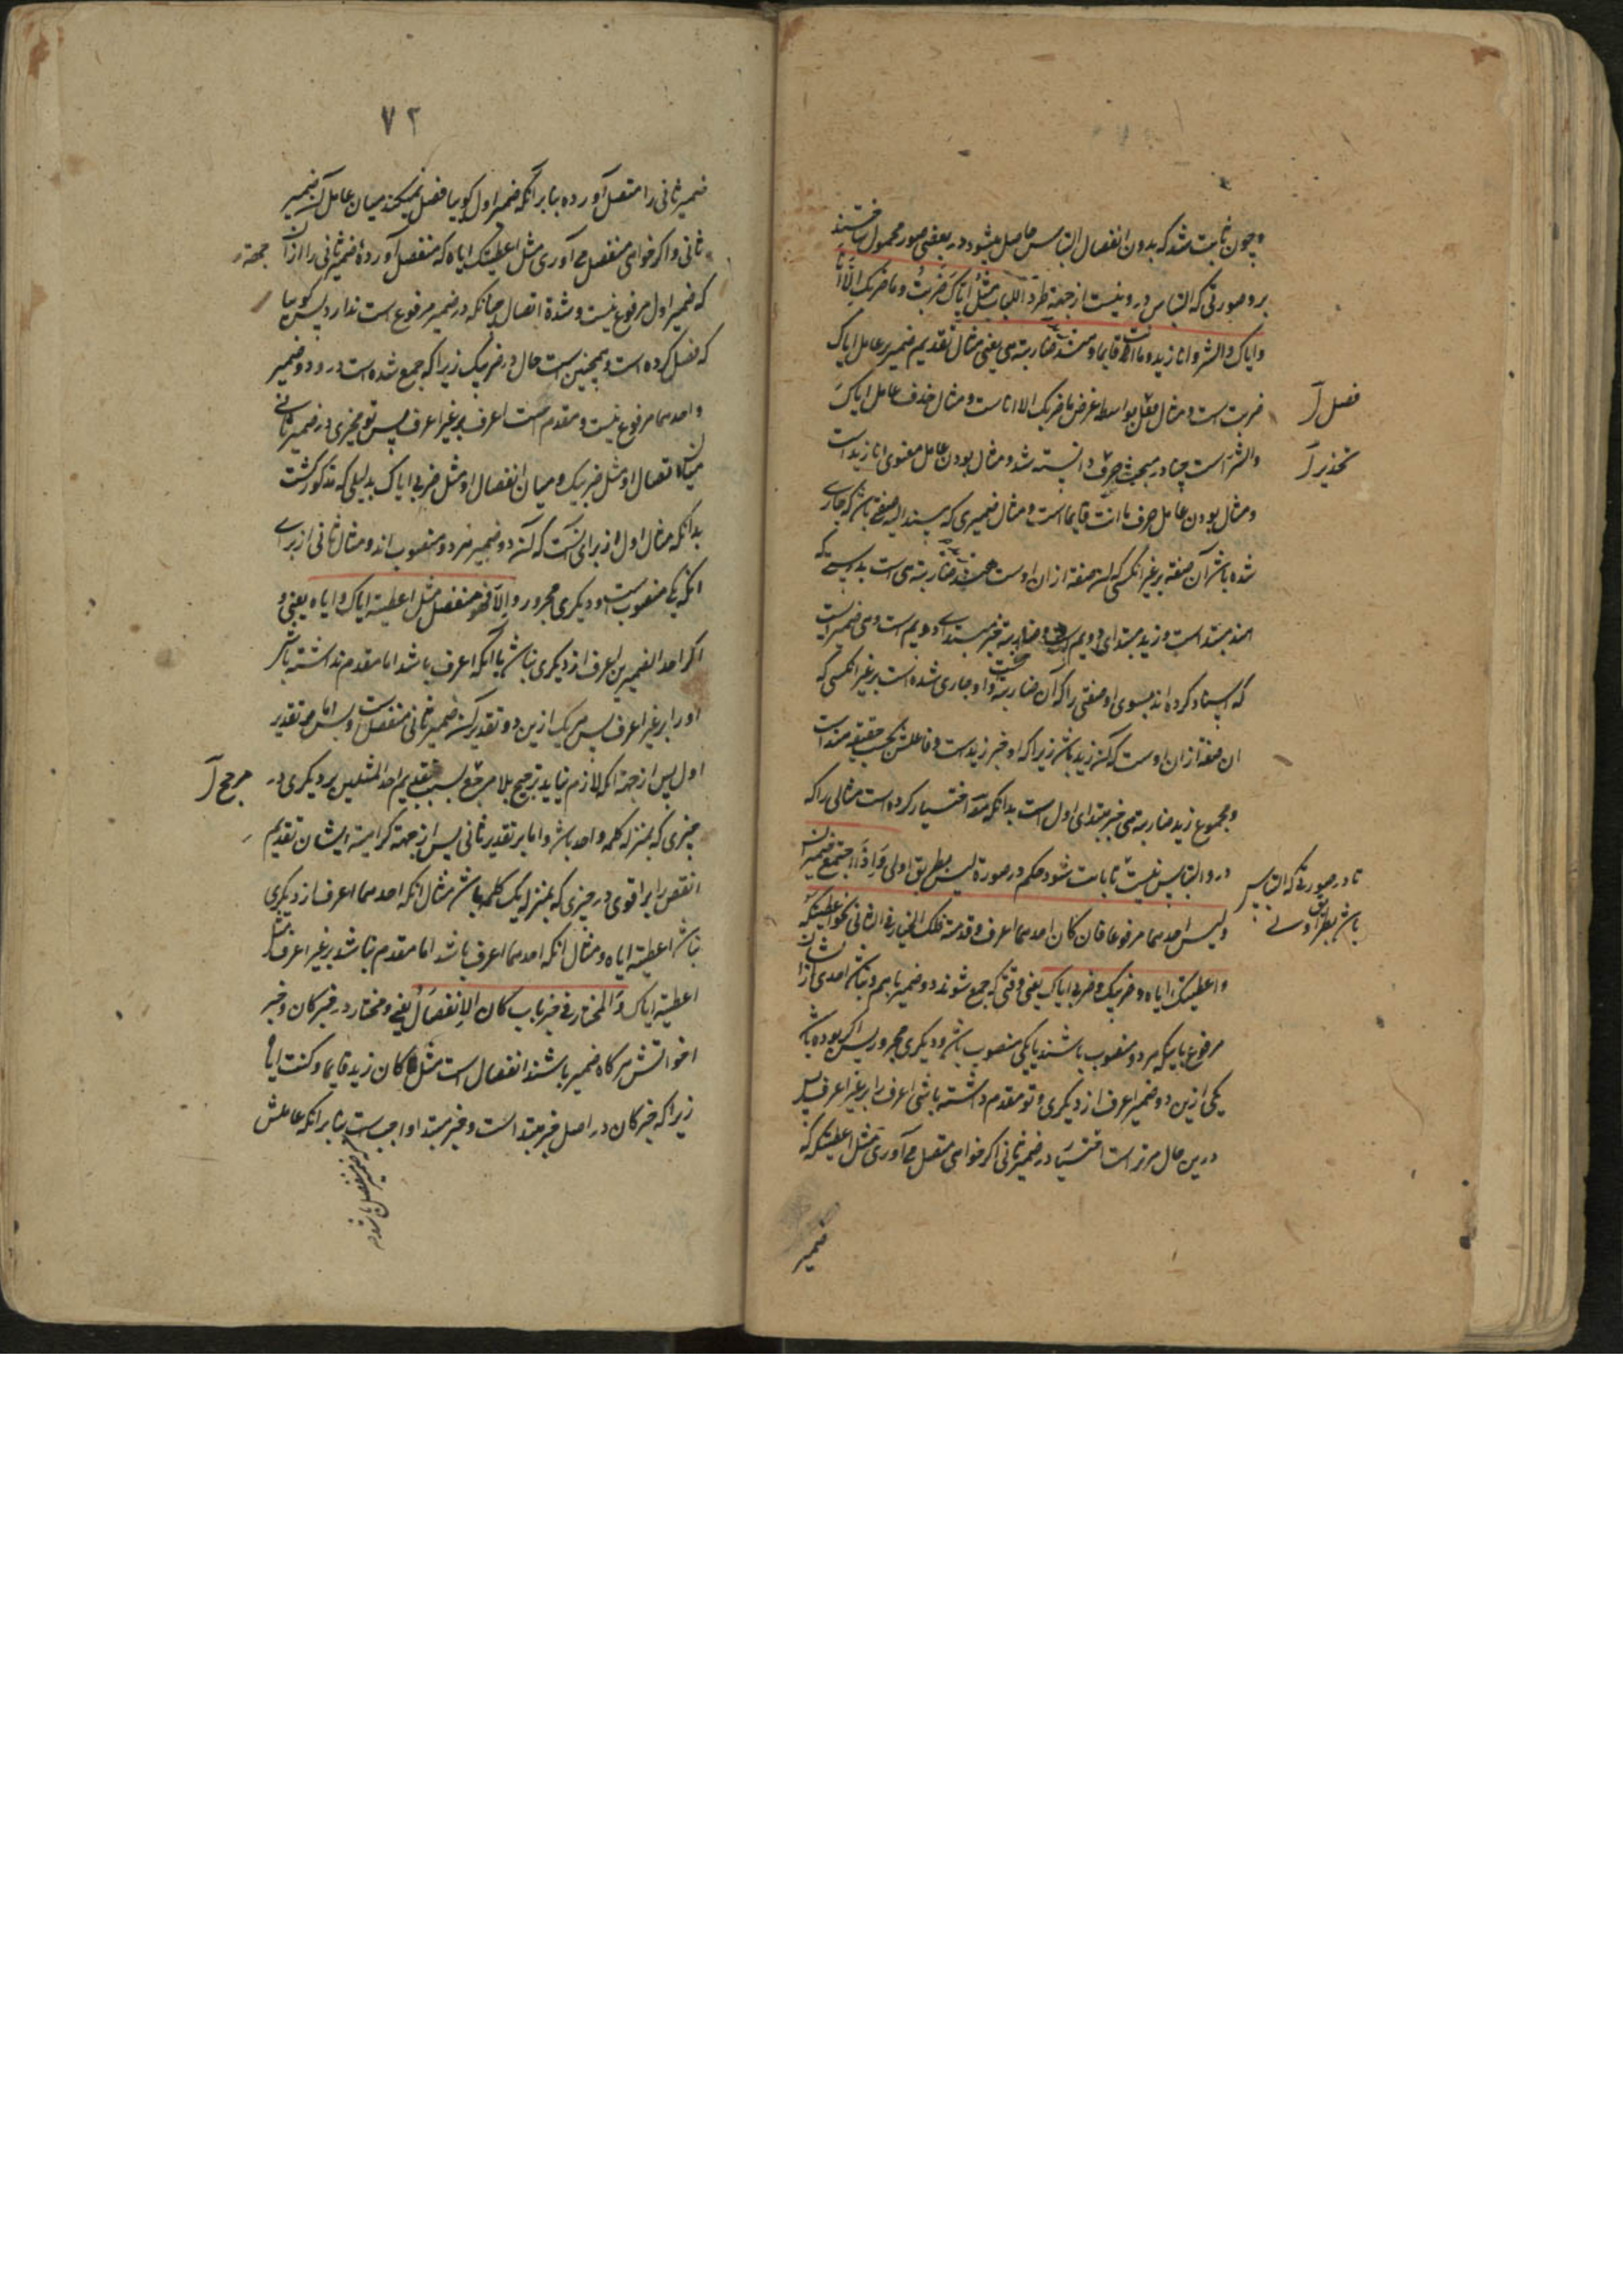 وچون ثابت شد که بدون انفصال التباس حاصل میشود در بعضی صور محمول ساختند
برو صورتی که التباس درو نیست از جهة طرد اللباب مثل اِیّاکَ ضَرَبْتُ وما ضربک اِلّا اَنَا
وایاک والشر وانا زید وما انت قایما وهند زید ضاربته هی یعنی مثال تقدیم ضمیر بر عامل ایاک
ضربت است ومثال فصل بواسطه غرض ما ضربک الا انا ست ومثال حذف عامل ایاکَ
والشر است چنانچه در مبحث دانسته شد ومثال بودن عامل معنوی انا زید است
ومثال بودن عامل حرف ما انت قایما است ومثال ضمیری که مسند الیه صفتی باشد که جاری
شده باشد آن صفة بر غیر آنکسی که آن صفة از ان اوست هند زید ضاربته هی است بدرستی که
هند مبتدا است وزید مبتدای دویم است وضاربته خبر مبتدای دویم است وهی ضمیر است
که اسناد کرده اند بسوی او صفتی را که آن ضاربته است واو جاری شده است بر غیر آنکسی که
ان صفة از ان اوست که آن زید باشد زیرا که او خبر زید است وفاعلش بحسب حقیقة هند است
ومجموع زید ضاربته هی خبر مبتدای اول است بدانکه مصـ اختیار کرده است مثالی را که
درو التباس نیست تا ثابت شود حکم در صورة لبس بطریق اولی وَاِذَا اجتمع ضمیران
ولیس احدهما مرفوعا فان کان احدهما اعرف وقدمته فلک الخیار فی الثانی نحو اعطیتکه
واعطیتک ایاه وضربیک وضربی ایاک یعنی وقتی که جمع شوند دو ضمیر باهم ونباشد احدی از ایشان
مرفوع بل که هر دو منصوب باشند یا یکی منصوب باشد ودیگری مجرور پس اگر بوده باشد
یکی ازین دو ضمیر اعرف از دیگری وتو مقدم داشته باشی اعرف را بر غیر اعرف پس
درین حال مر تراست اختیار در ضمیر ثانی اگر خواهی متصل می آوری مثل اعطیتکه که
ضمیر
فصل آ
تحذیر آ
تا در صورتی که التباس
باشد بطریق اولی
۷۲
ضمیر ثانی را متصل آورده بنابر آنکه ضمیر اول کویا فصل نمیکند میان عامل آن ضمیر
ثانی واکر خواهی منفصل می آوری مثل اعطیتک ایاه که منفصل آوردهٔ ضمیر ثانی را از آن
جهة
که ضمیر اول مرفوع نیست وشدة اتصال چنانکه در ضمیر مرفوع است ندارد پس کویا
که فصل کرده است وهمچنین است حال در ضربیک زیرا که جمع شده است درو دو ضمیر
واحدهما مرفوع نیست ومقدم است اعرف بر غیر اعرف پس تو مخیری در ضمیر ثانی
میان اتصال او مثل ضربیک ومیان انفصال او مثل ضربی ایاک بدلیلی که مذکور کشت
بدانکه مثال اول از برای آنست که آن دو ضمیر هر دو منصوب اند ومثال ثانی از برای
انکه یکی منصوب است ودیگری مجرور وَاِلّا فهو منفصل مثل اعطیته ایاک وایاه یعنی و
اکر احد الضمیرین اعرف از دیکری نباشد یا آنکه اعرف باشد اما مقدم نداشته باشد
او را بر غیر اعرف پس هر یک ازین دو تقدیر آن ضمیر ثانی منفصل است وبس اما بر تقدیر
اول پس از جهة انکه لازم نیاید ترجیح بلا مرجح بسبب تقدیم احد المثلین بر دیکری در
مرجح آ
چیزی که بمنزله کلمه واحد باشد واما بر تقدیر ثانی پس از جهة کراهیة ایشان تقدیم
انقص را بر اقوی در چیزی که بمنزله یک کلمه باشد مثال انکه احدهما اعرف از دیکری
نباشد اعطیته ایاه ومثال انکه احدهما اعرف باشد اما مقدم نباشد بر غیر اعرف مثل
اعطیته ایاک وَالمختار فی خبر باب کان الاِنفصَالُ یعنی ومختار در خبر کان وخبر
اخواتش هرکاه ضمیر باشند انفصال است مثل کان زید قایما وکنت ایاه
زیرا که خبر کان در اصل خبر مبتدا است وخبر مبتدا واجب است بنابر انکه عاملش
که ضمیر منفصل باشد